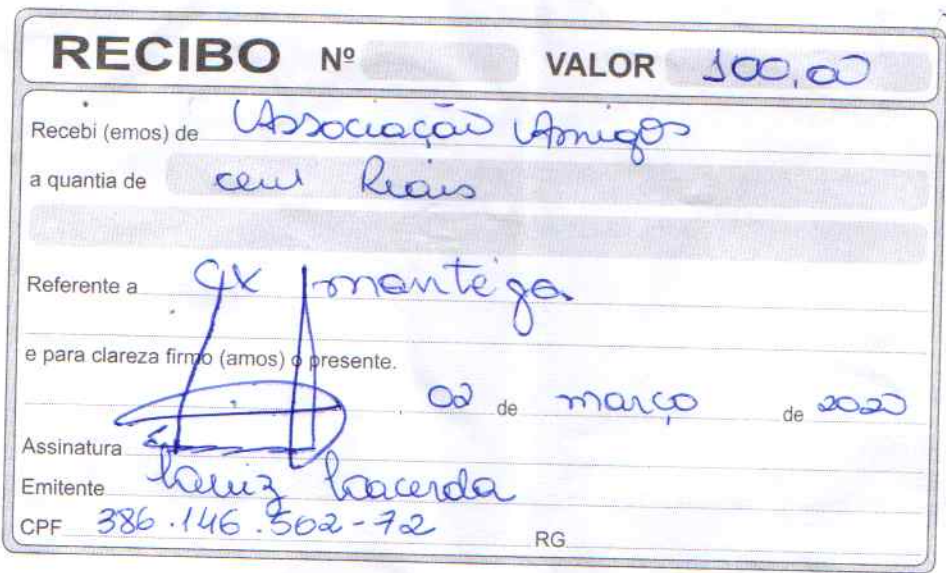 RECIBO Nº VALOR 100,00
Recebi (emos) de Associação Amigos
a quantia de cem Reais
Referente a cx mantega
e para clareza firmo (amos) o presente.
02 de março de 2020
Assinatura
Emitente Lacerda
CPF 386.146.502-72 RG